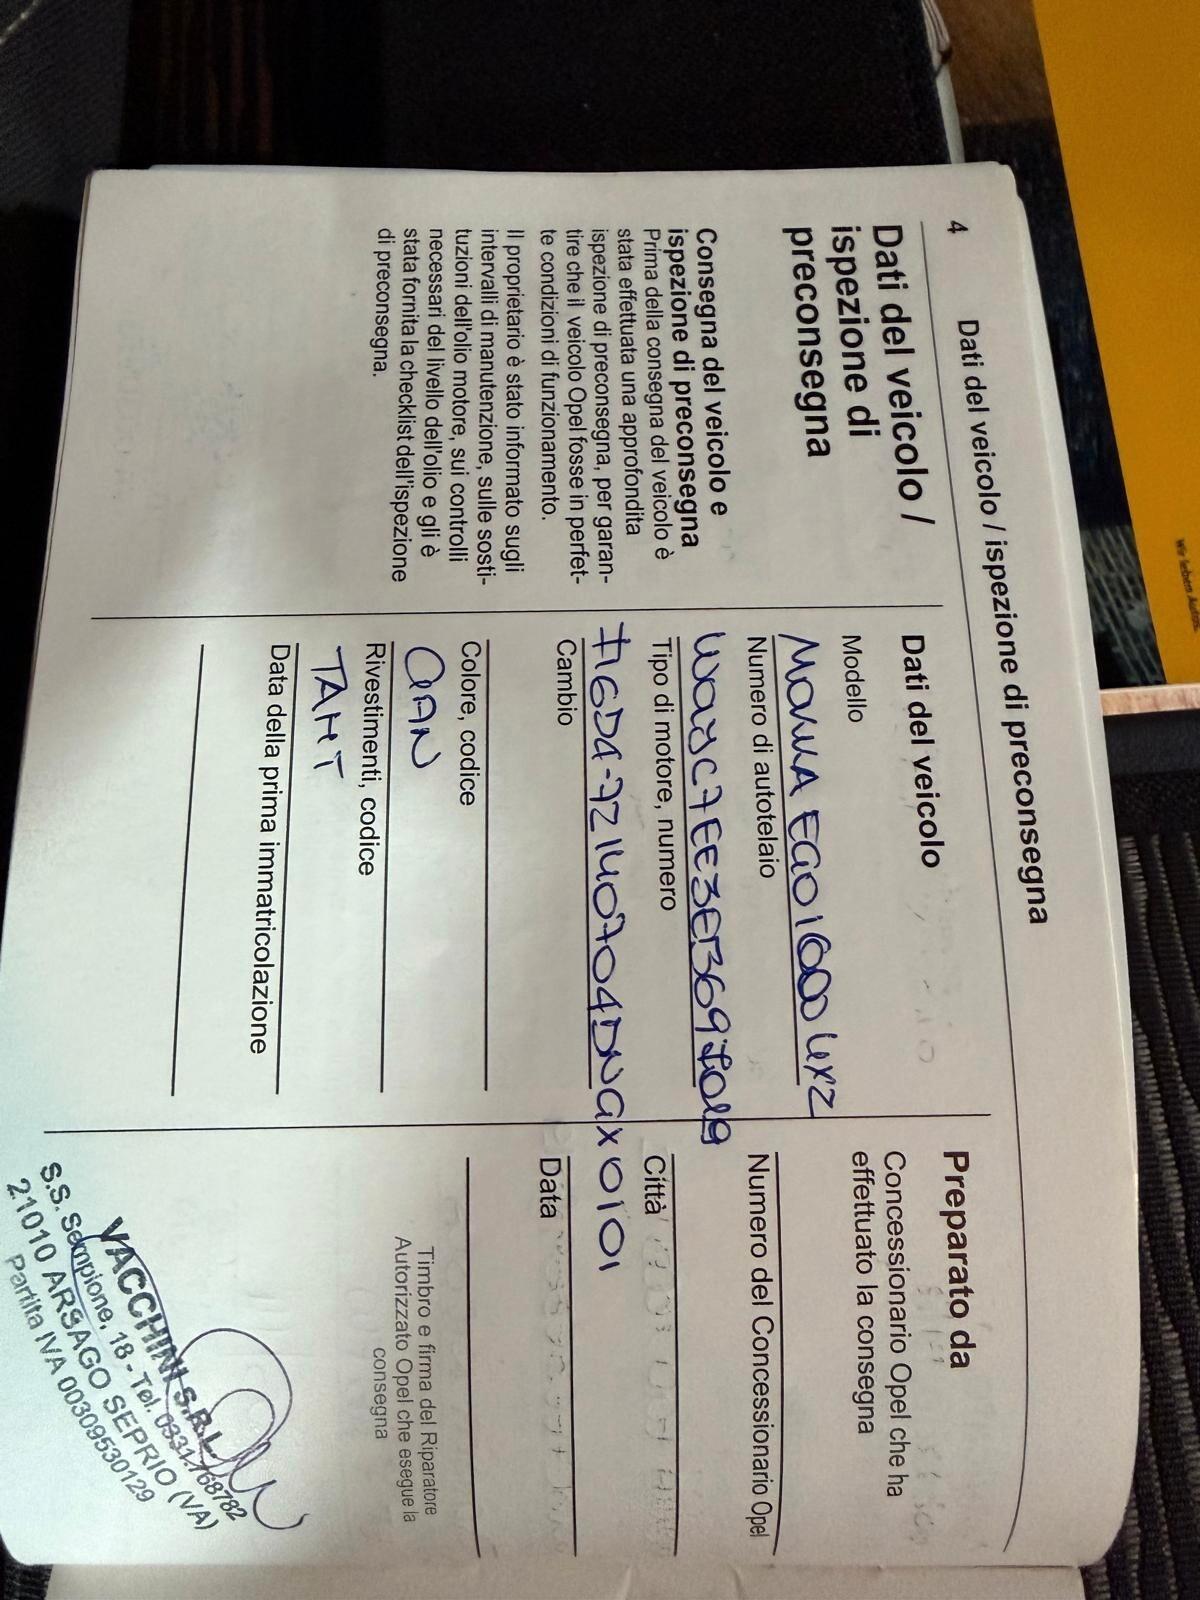 4
Dati del veicolo / ispezione di preconsegna
Dati del veicolo /
ispezione di
preconsegna
Consegna del veicolo e
ispezione di preconsegna
Prima della consegna del veicolo è
stata effettuata una approfondita
ispezione di preconsegna, per garan-
tire che il veicolo Opel fosse in perfet-
te condizioni di funzionamento.
Il proprietario è stato informato sugli
intervalli di manutenzione, sulle sosti-
tuzioni dell'olio motore, sui controlli
necessari del livello dell'olio e gli è
stata fornita la checklist dell'ispezione
di preconsegna.
Dati del veicolo
Modello
Numero di autotelaio
Tipo di motore, numero
Cambio
Colore, codice
Rivestimenti, codice
TAHT
Data della prima immatricolazione
Preparato da
Concessionario Opel che ha
effettuato la consegna
Numero del Concessionario Opel
Città
Data
Timbro e firma del Riparatore
Autorizzato Opel che esegue la
consegna
VACCHINI S.R.L.
S.S. Sempione, 18 - Tel. 0331.768782
21010 ARSAGO SEPRIO (VA)
Partita IVA 00309530129
Wir leben Autos.